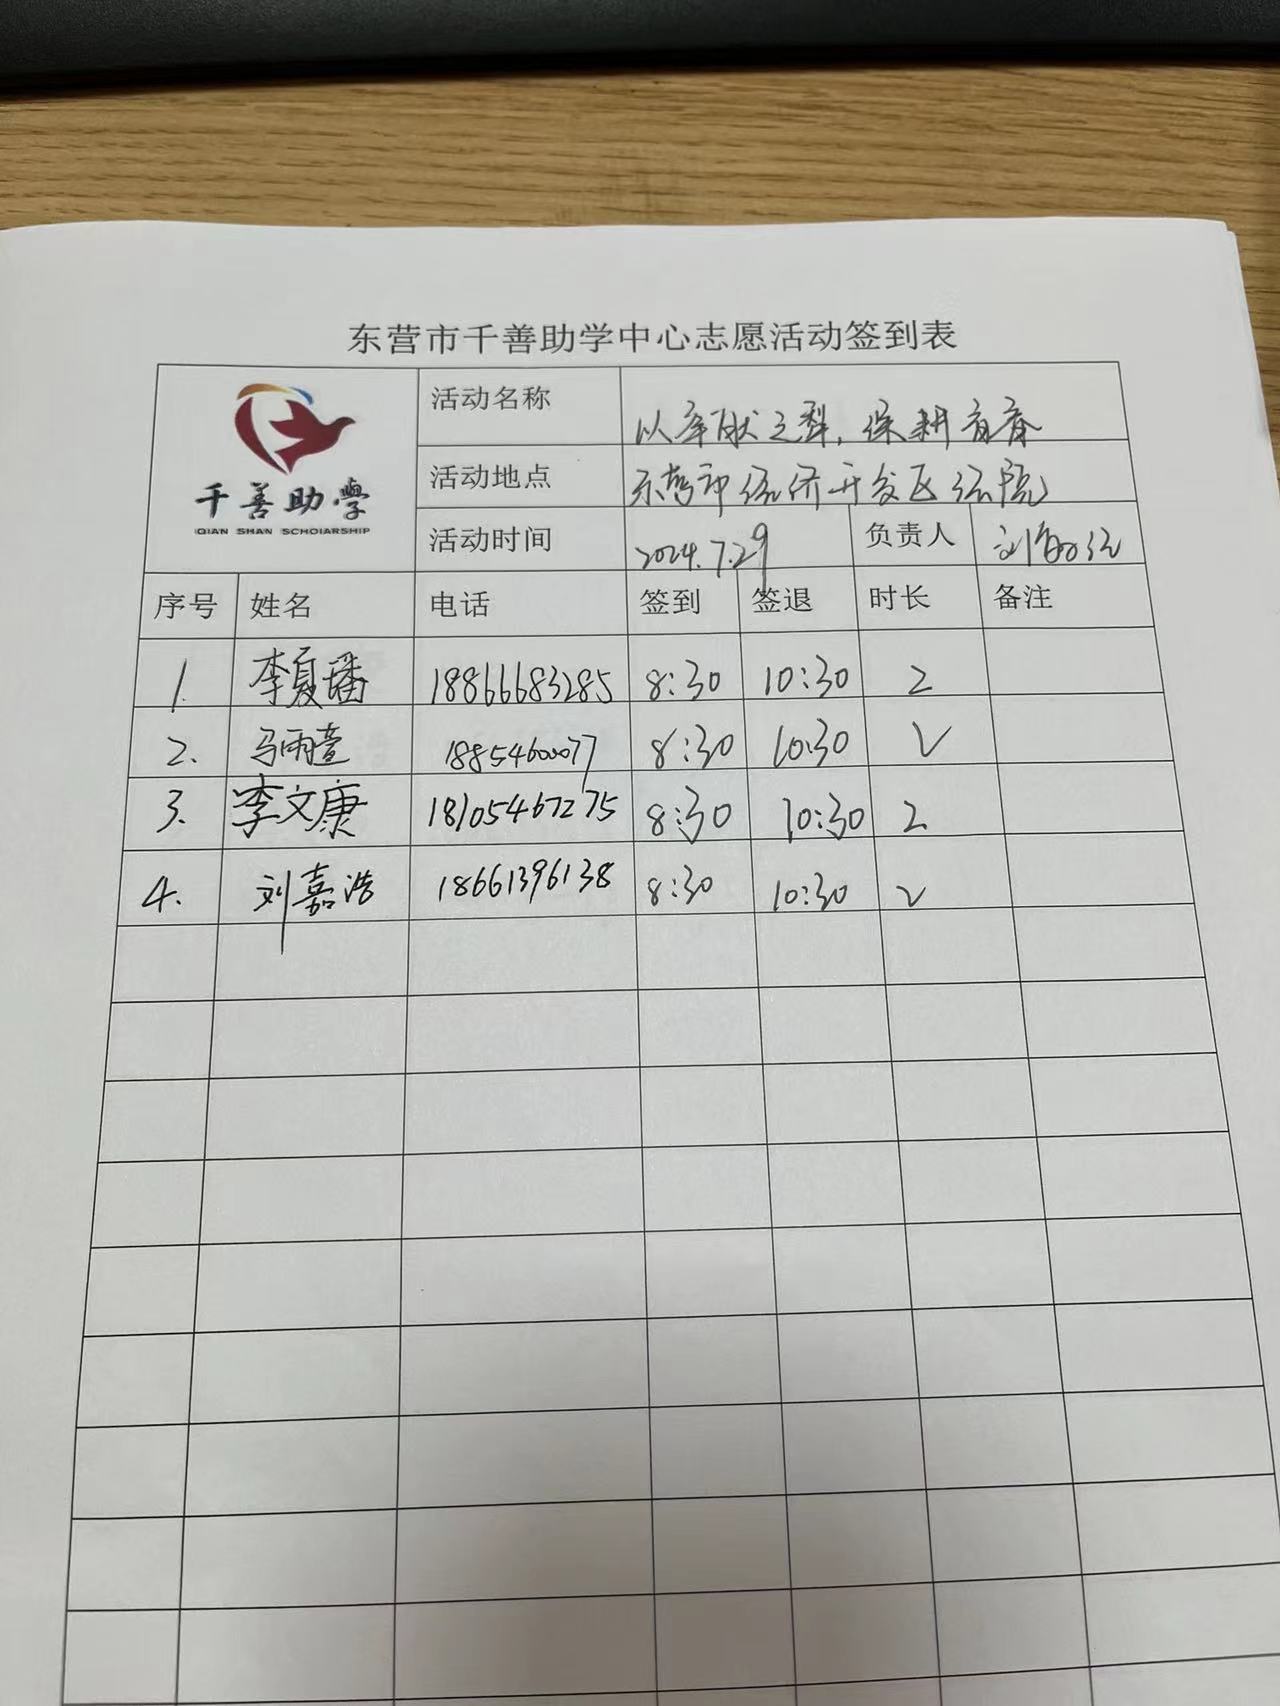 东营市千善助学中心志愿活动签到表
千善助學
QIAN SHAN SCHOIARSHIP
活动名称 以奉献之犁,深耕青春
活动地点 东营市经济开发区法院
活动时间 2024.7.29 负责人 刘
序号 姓名 电话 签到 签退 时长 备注
1. 李夏璠 18866683285 8:30 10:30 2
2. 马雨萱 18854600077 8:30 10:30 2
3. 李文康 18105467275 8:30 10:30 2
4. 刘嘉浩 18661396138 8:30 10:30 2